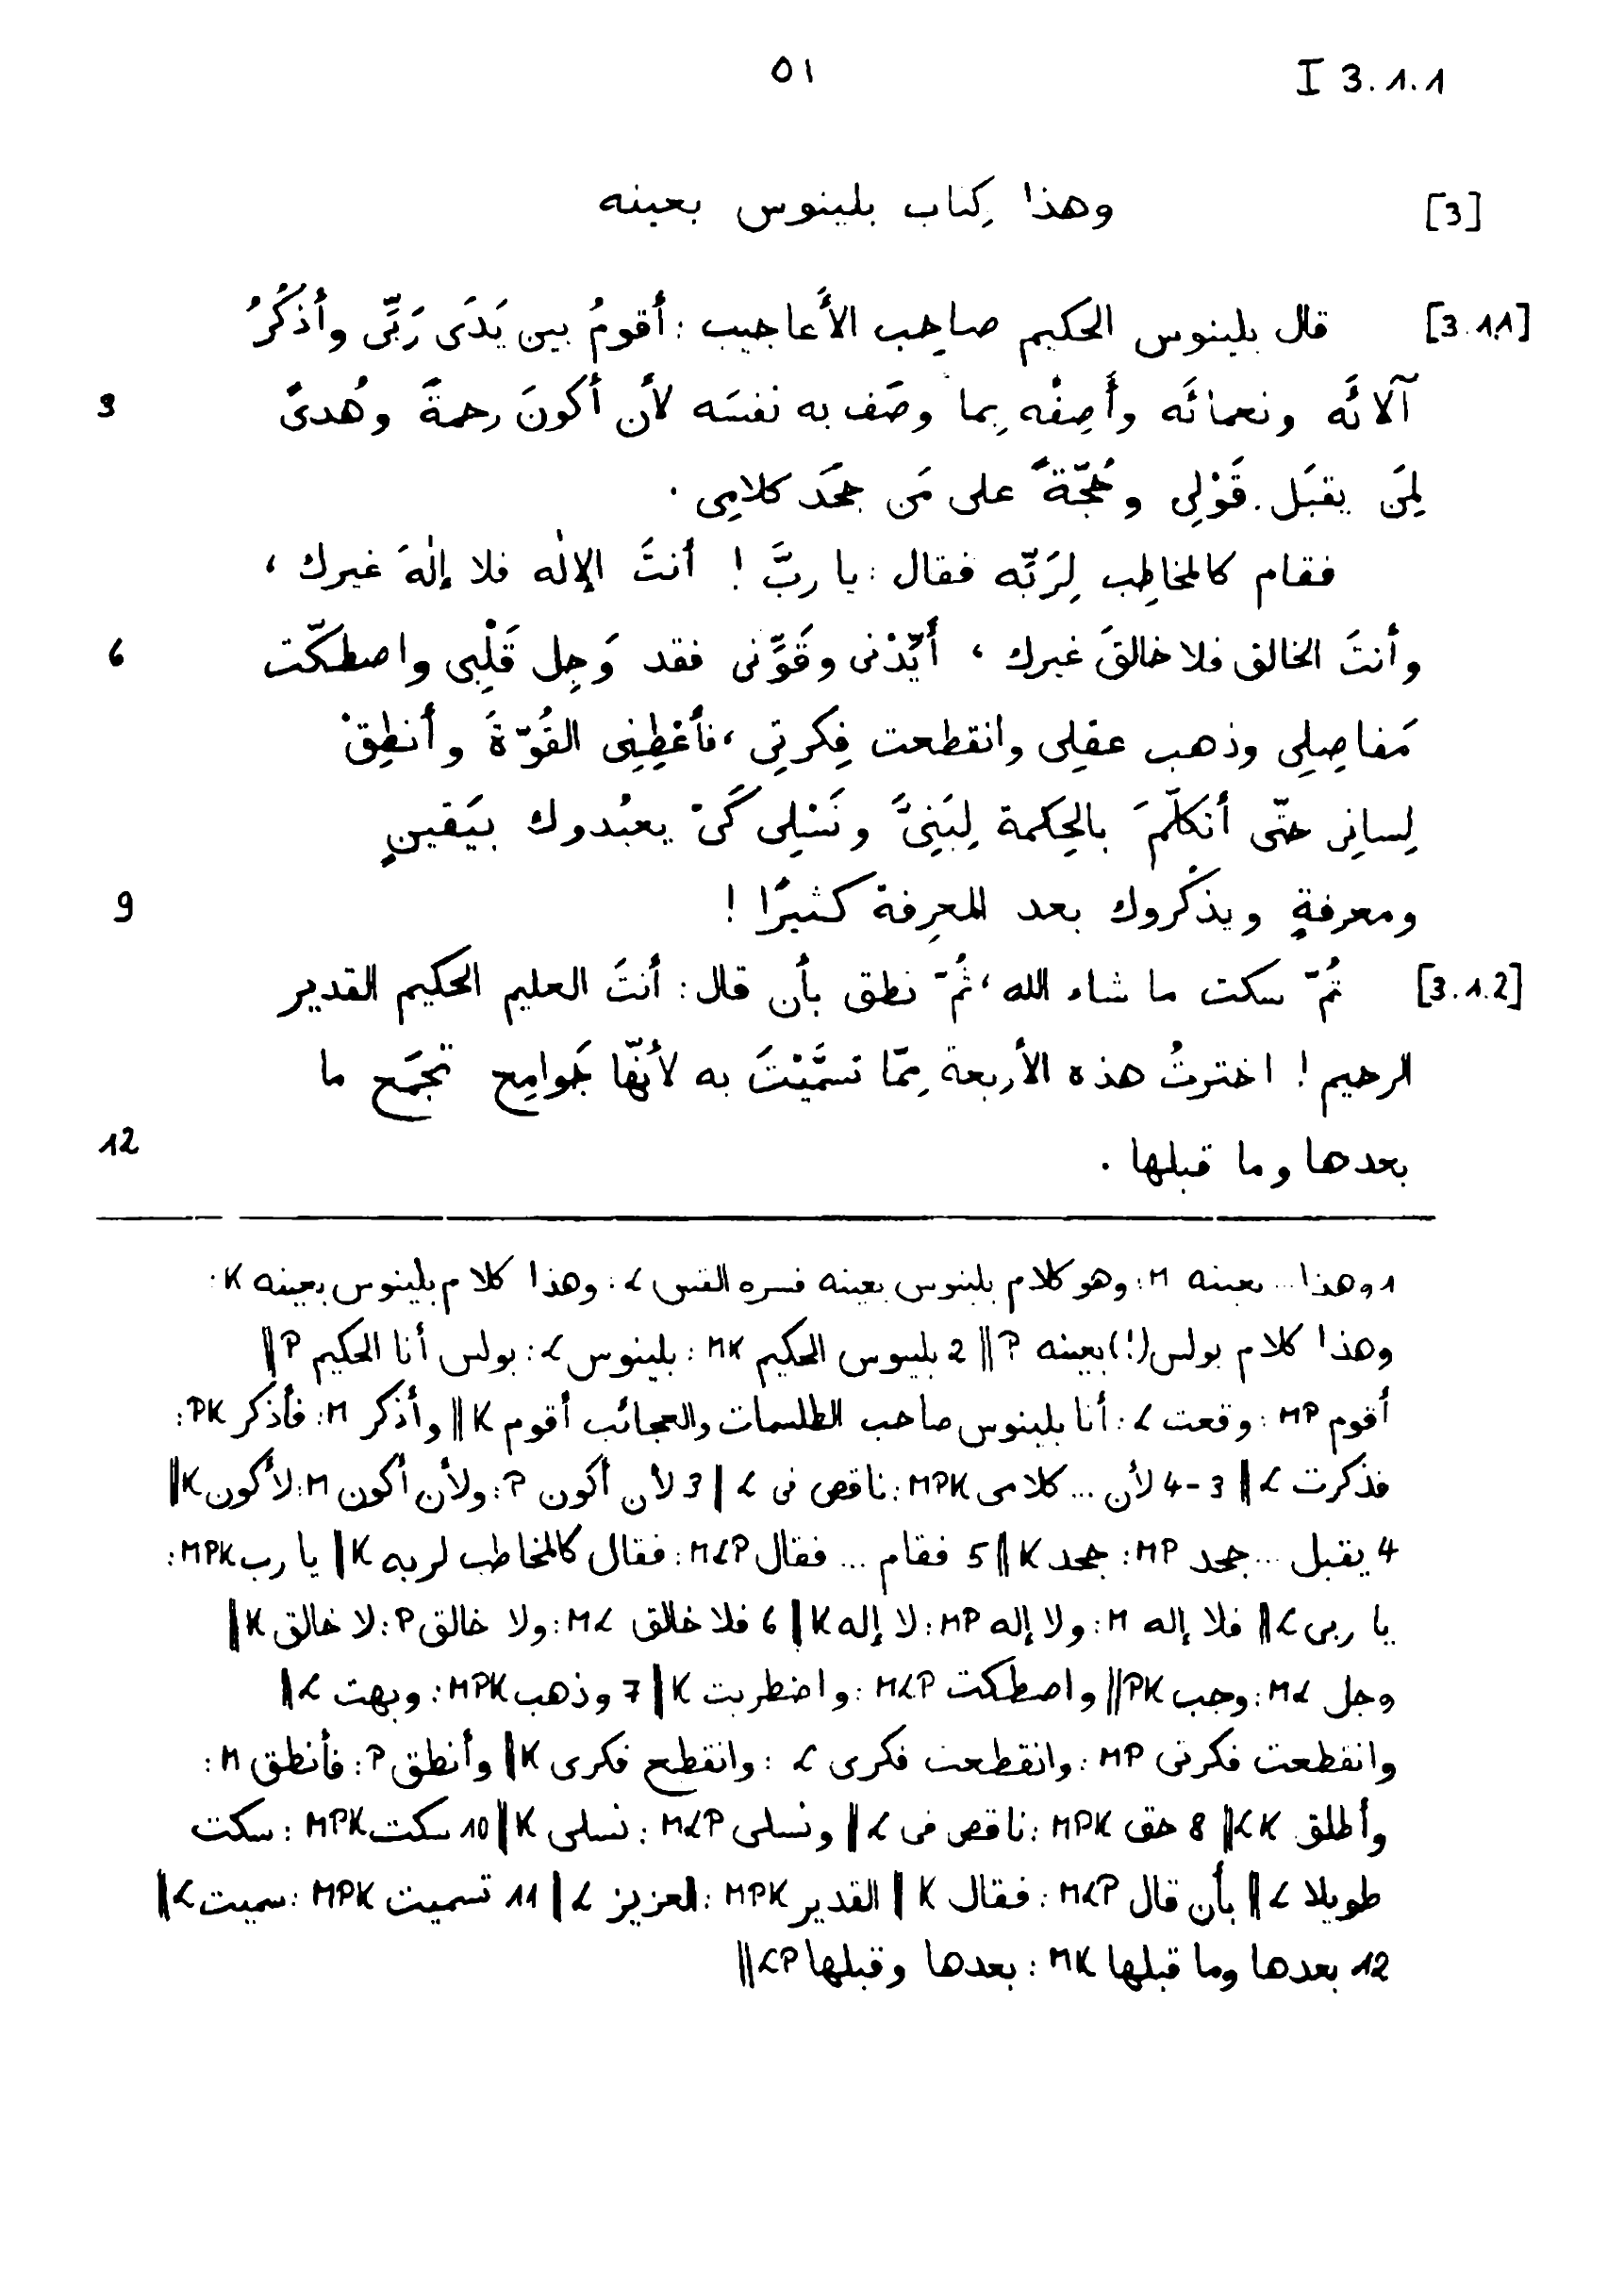 ٥١
I 3.1.1
[3] وهذا كِتاب بلينوس بعينه
[3.1.1] قال بلينوس الحكيم صاحِب الأَعاجيب : أَقومُ بين يَدَى رَبِّى وأَذكُرُ
3 آلائَه ونعمائَه وأَصِفْه بِما وصَف به نفسَه لأن أكونَ رحمةً وهُدىً
لِمَن يقبَل قَوْلِى وحُجّةً على مَن جحَد كلامِى .
فقام كالمخاطِب لِرَبّه فقال : يا ربَّ ! أنتَ الإلٰه فلا إلٰهَ غيرك ،
6 وأنتَ الخالق فلا خالقَ غيرك ، أَيِّدْنى وقَوِّنى فقد وَجِل قَلْبِى واصطكّت
مَفاصِلِى وذهب عقلِى وانقطعت فِكرتِى ، فأَعْطِنِى القُوّةَ وأَنطِقْ
لِسانِى حتّى أتكلّمَ بالحِكمة لِبَنِىَّ ونَسْلِى كَىْ يعبُدوك بيَقينٍ
9 ومعرفةٍ ويذكُروك بعد المعرِفة كثيرًا !
[3.1.2] ثُمّ سكت ما شاء الله ، ثُمّ نطق بأن قال : أنتَ العليم الحكيم القدير
الرحيم ! اخترتُ هذه الأربعة مِمّا تسمَّيْتَ به لأنّها جَوامِع تجمَع ما
12 بعدها وما قبلها .
1 وهذا ... بعينه M : وهو كلام بلينوس بعينه فسره القس L : وهذا كلام بلينوس بعينه K :
وهذا كلام بولس (!) بعينه P || 2 بلينوس الحكيم MK : بلينوس L : بولس أنا الحكيم P ||
أقوم MP : وقعت L : أنا بلينوس صاحب الطلسمات والعجائب أقوم K || وأذكر M : فأذكر PK :
فذكرت L || 3-4 لأن ... كلامى MPK : ناقص فى L || 3 لأن أكون P : ولأن أكون M : لأكون K ||
4 يقبل ... جحد MP : جحد K || 5 فقام ... فقال MLP : فقال كالمخاطب لربه K || يا رب MPK :
يا ربى L || فلا إله M : ولا إله MP : لا إله K || 6 فلا خالق ML : ولا خالق P : لا خالق K ||
وجل ML : وجب PK || واصطكت MLP : واضطربت K || 7 وذهب MPK : وبهت L ||
وانقطعت فكرتى MP : وانقطعت فكرى L : وانقطع فكرى K || وأنطق P : فأنطق M :
وأطلق LK || 8 حق MPK : ناقص فى L || ونسلى MLP : نسلى K || 10 سكت MPK : سكت
طويلا L || بأن قال MLP : فقال K || القدير MPK : العزيز L || 11 تسميت MPK : سميت L ||
12 بعدها وما قبلها MK : بعدها وقبلها LP ||